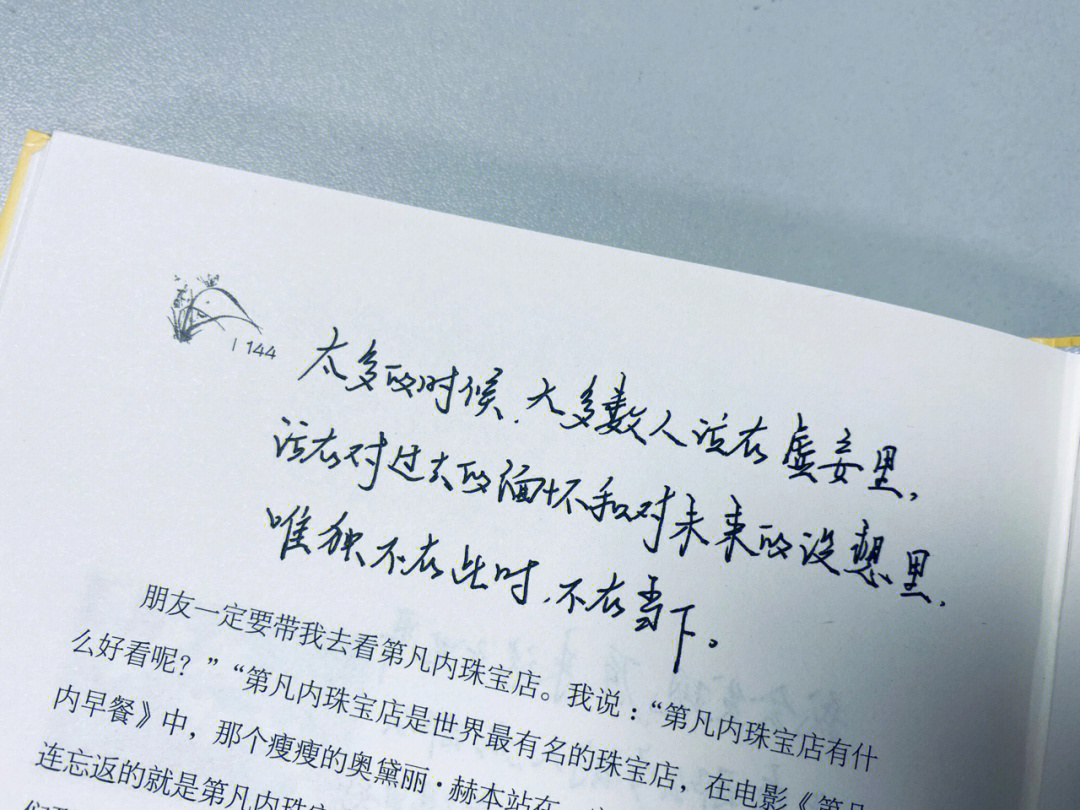 144
太多的时候,大多数人活在虚妄里,
活在对过去的缅怀和对未来的设想里,
唯独不在此时,不在当下。
朋友一定要带我去看第凡内珠宝店。我说:“第凡内珠宝店有什
么好看呢?”“第凡内珠宝店是世界最有名的珠宝店,在电影《第凡
内早餐》中,那个瘦瘦的奥黛丽·赫本站在
连忘返的就是第凡内珠宝